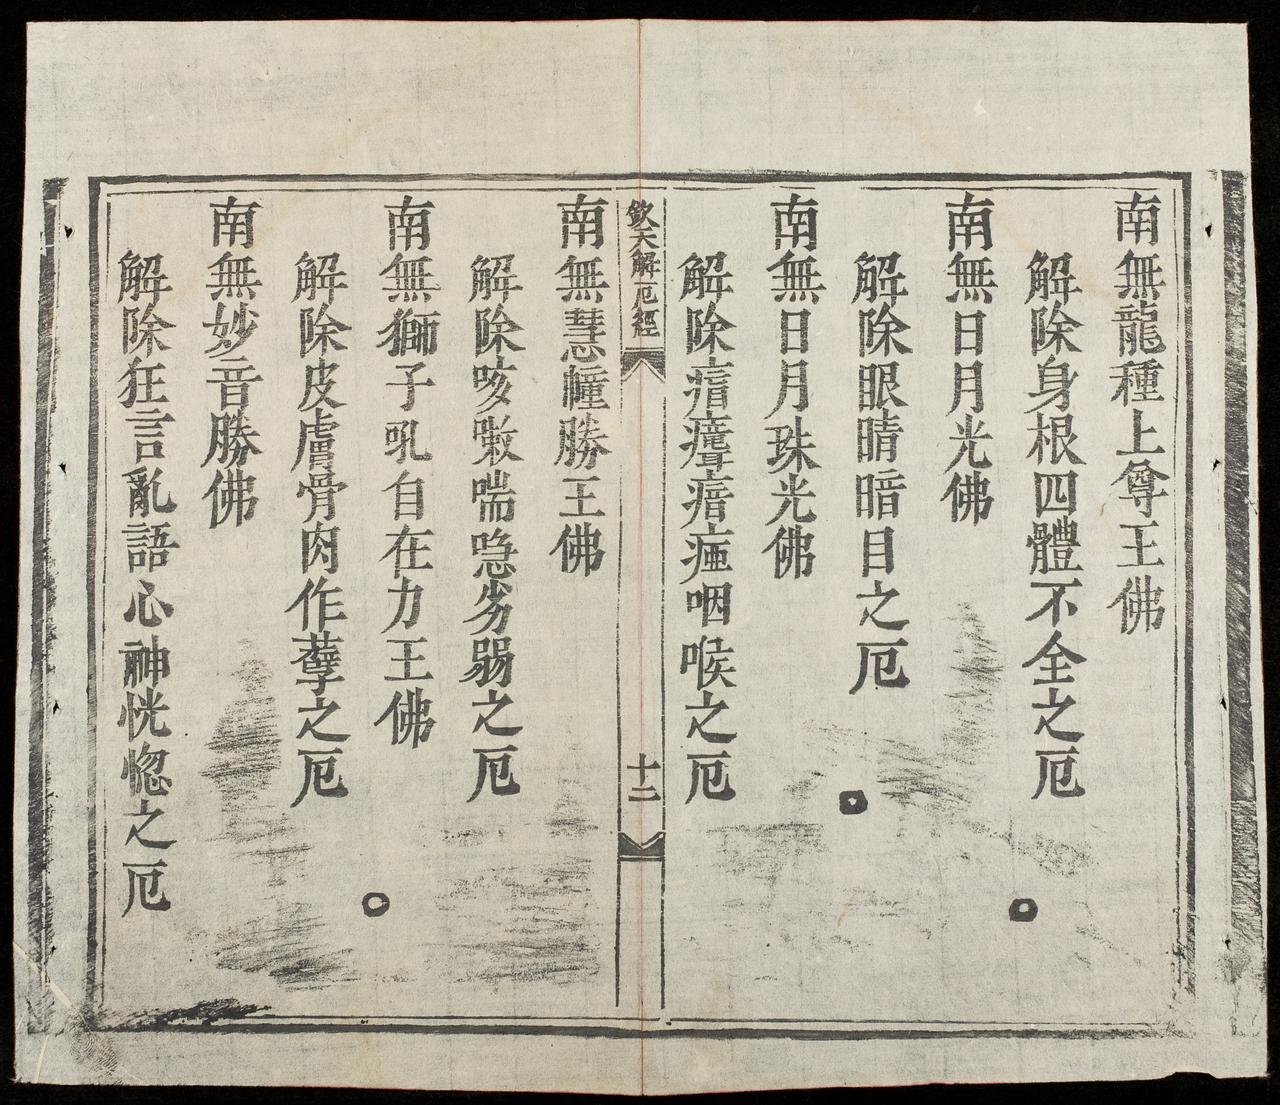 南無龍種上尊王佛
解除身根四體不全之厄
南無日月光佛
解除眼睛暗目之厄
南無日月珠光佛
解除瘖聾瘖瘂咽喉之厄
欽天解厄經
十二
南無慧幢勝王佛
解除咳嗽喘急劣弱之厄
南無獅子吼自在力王佛
解除皮膚骨肉作孽之厄
南無妙音勝佛
解除狂言亂語心神恍惚之厄